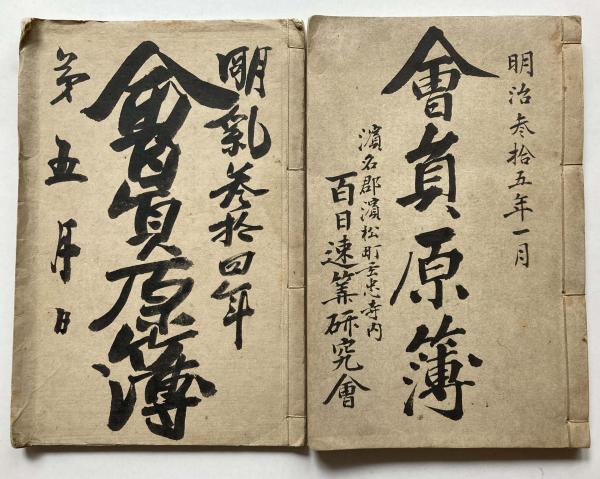 明治参拾五年一月
會員原簿
濱名郡濱松町玄忠寺内
百日速算研究會
明治参拾四年
會員原簿
第五月日